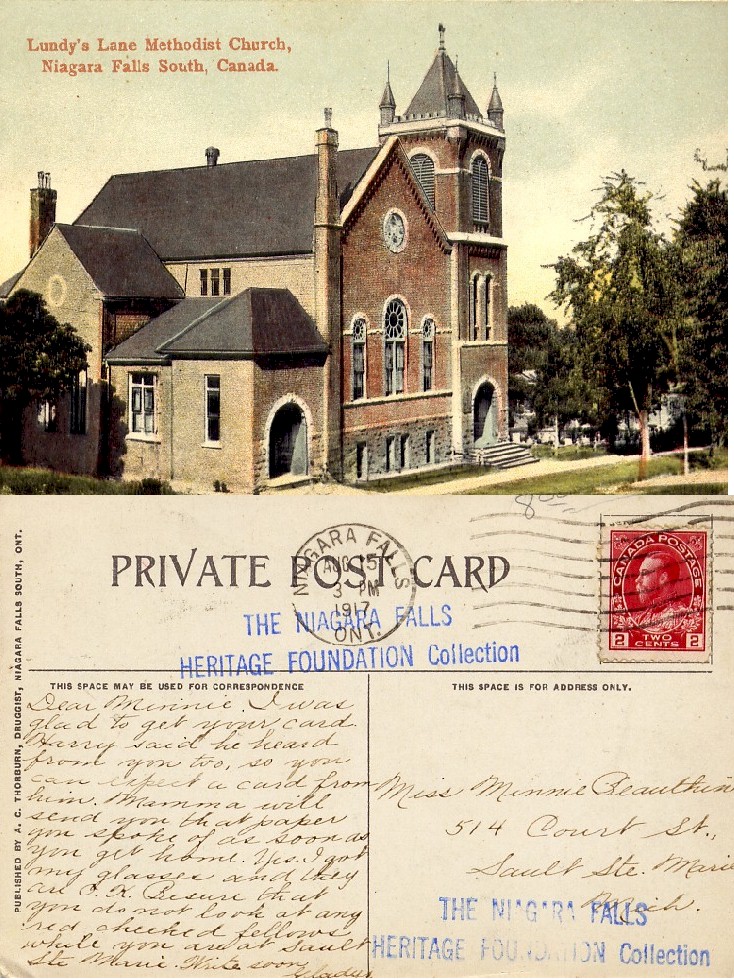 Lundy's Lane Methodist Church,
Niagara Falls South, Canada.
PRIVATE POST CARD
NIAGARA FALLS
AUG 15
3 PM
1917
ONT.
CANADA POSTAGE
2 TWO CENTS 2
THE NIAGARA FALLS
HERITAGE FOUNDATION Collection
THIS SPACE MAY BE USED FOR CORRESPONDENCE
THIS SPACE IS FOR ADDRESS ONLY.
PUBLISHED BY A. C. THORBURN, DRUGGIST, NIAGARA FALLS SOUTH, ONT.
Dear Minnie, I was
glad to get your card.
Harry said he heard
from you too, so you
can expect a card from
him. Mamma will
send you that paper
you spoke of as soon as
you get home. Yes. I got
my glasses and they
are O.K. Besure that
you do not look at any
red cheeked fellows
while you are at Sault
Ste Marie. Write soon
Gladys
Miss Minnie
514 Court St.,
Sault Ste. Marie
Mich.
THE NIAGARA FALLS
HERITAGE FOUNDATION Collection